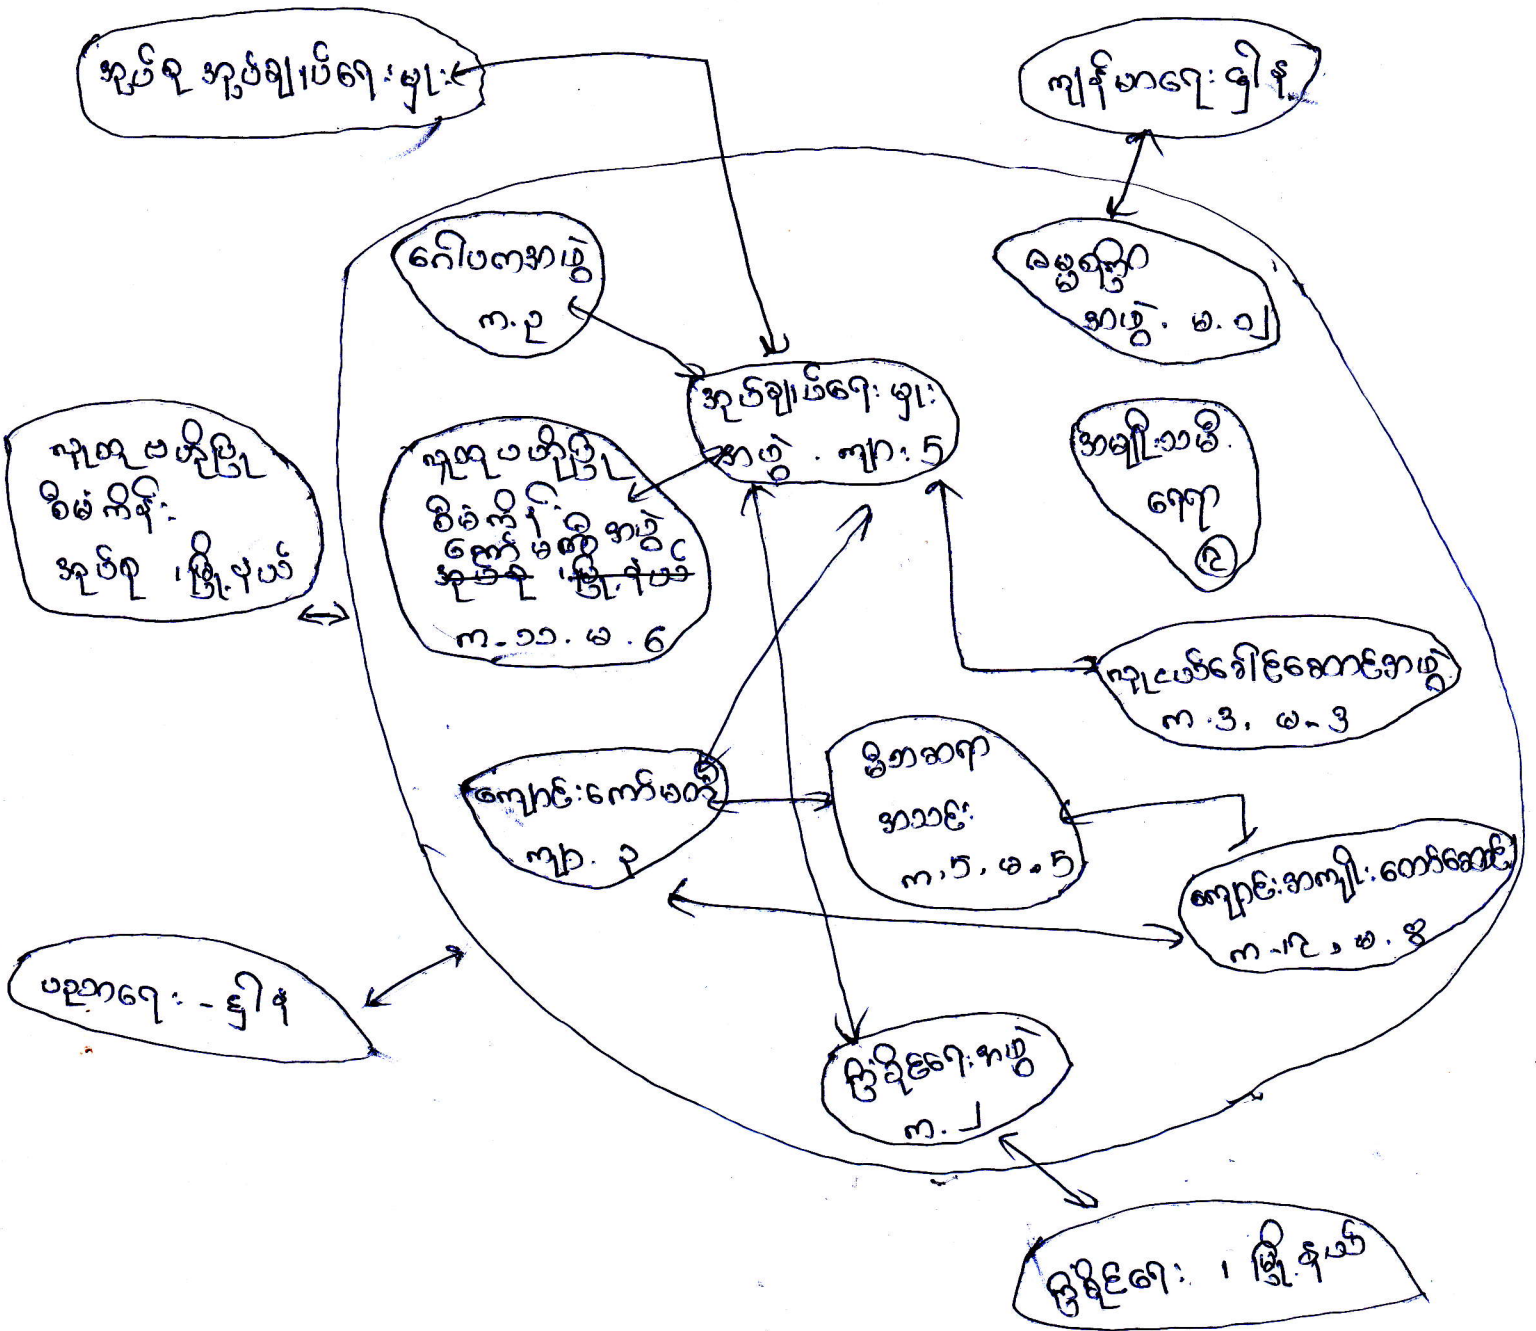 အုပ်စု အုပ်ချုပ်ရေးမှူး
ကျန်းမာရေးဌါန
ဂေါပကအဖွဲ့
က.၃
ဓမ္မရက္ခိတ
အဖွဲ့. မ. ၁၂
အုပ်ချုပ်ရေးမှူး
အဖွဲ့. ကျား 5
အမျိုးသမီး
ရေးရာ
၎
လူထုဗဟိုပြု
စီမံကိန်း
အုပ်စု ၊ မြို့နယ်
လူထုဗဟိုပြု
စီမံကိန်း
ကော်မတီ အဖွဲ့
အုပ်စု ၊ မြို့နယ်
က-၁၁. မ. 6
လူငယ်ခေါင်ဆောင်အဖွဲ့
က.၃, မ-၃
ကျောင်းကော်မတီ
ကျာ. ၃
မိဘဆရာ
အသင်း
က.5. မ.5
ကျောင်းအကျိုးတော်ဆောင်
ပညာရေး - ဌါန
ကြံ့ခိုင်ရေးအဖွဲ့
က.၂
ကြံ့ခိုင်ရေး ၊ မြို့နယ်